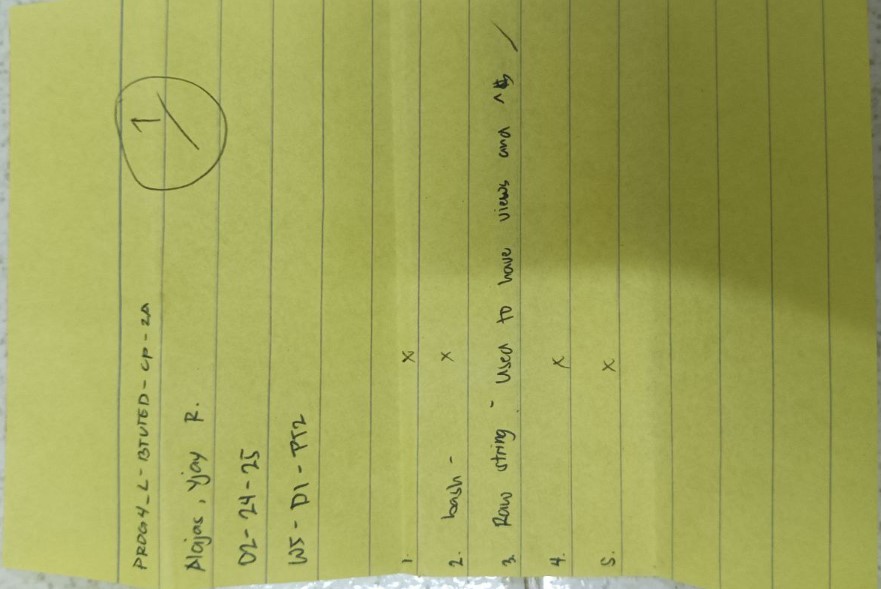 PROG4_L-BTVTED-CP-2A
1
Alajas, Yjay R.
02-24-25
W5-D1-PT2
1. x
2. bash - x
3. Raw string - Used to have views and ^$ /
4. x
5. x